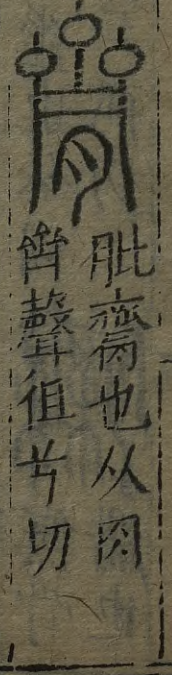 臍
肶臍也从肉
齊聲徂兮切